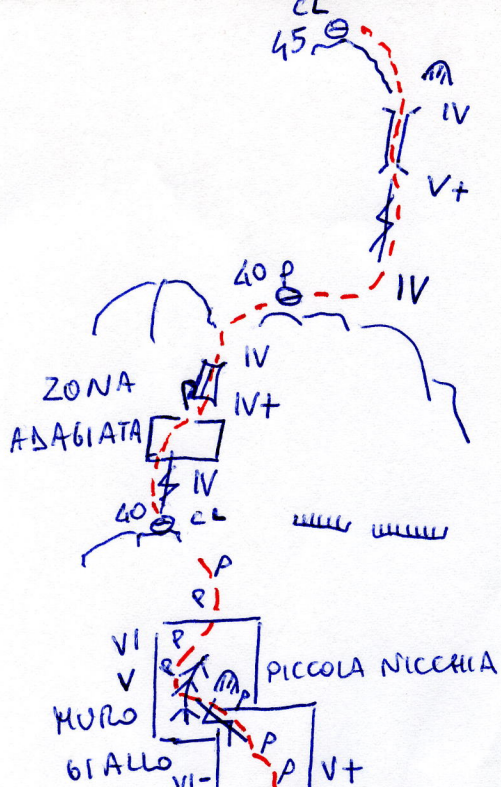 CL
45
IV
V+
40 P
IV
IV
ZONA
IV+
ADAGIATA
IV
40 CL
P
P
VI P
P
V PICCOLA NICCHIA
P
MURO
P
GIALLO P V+
VI-